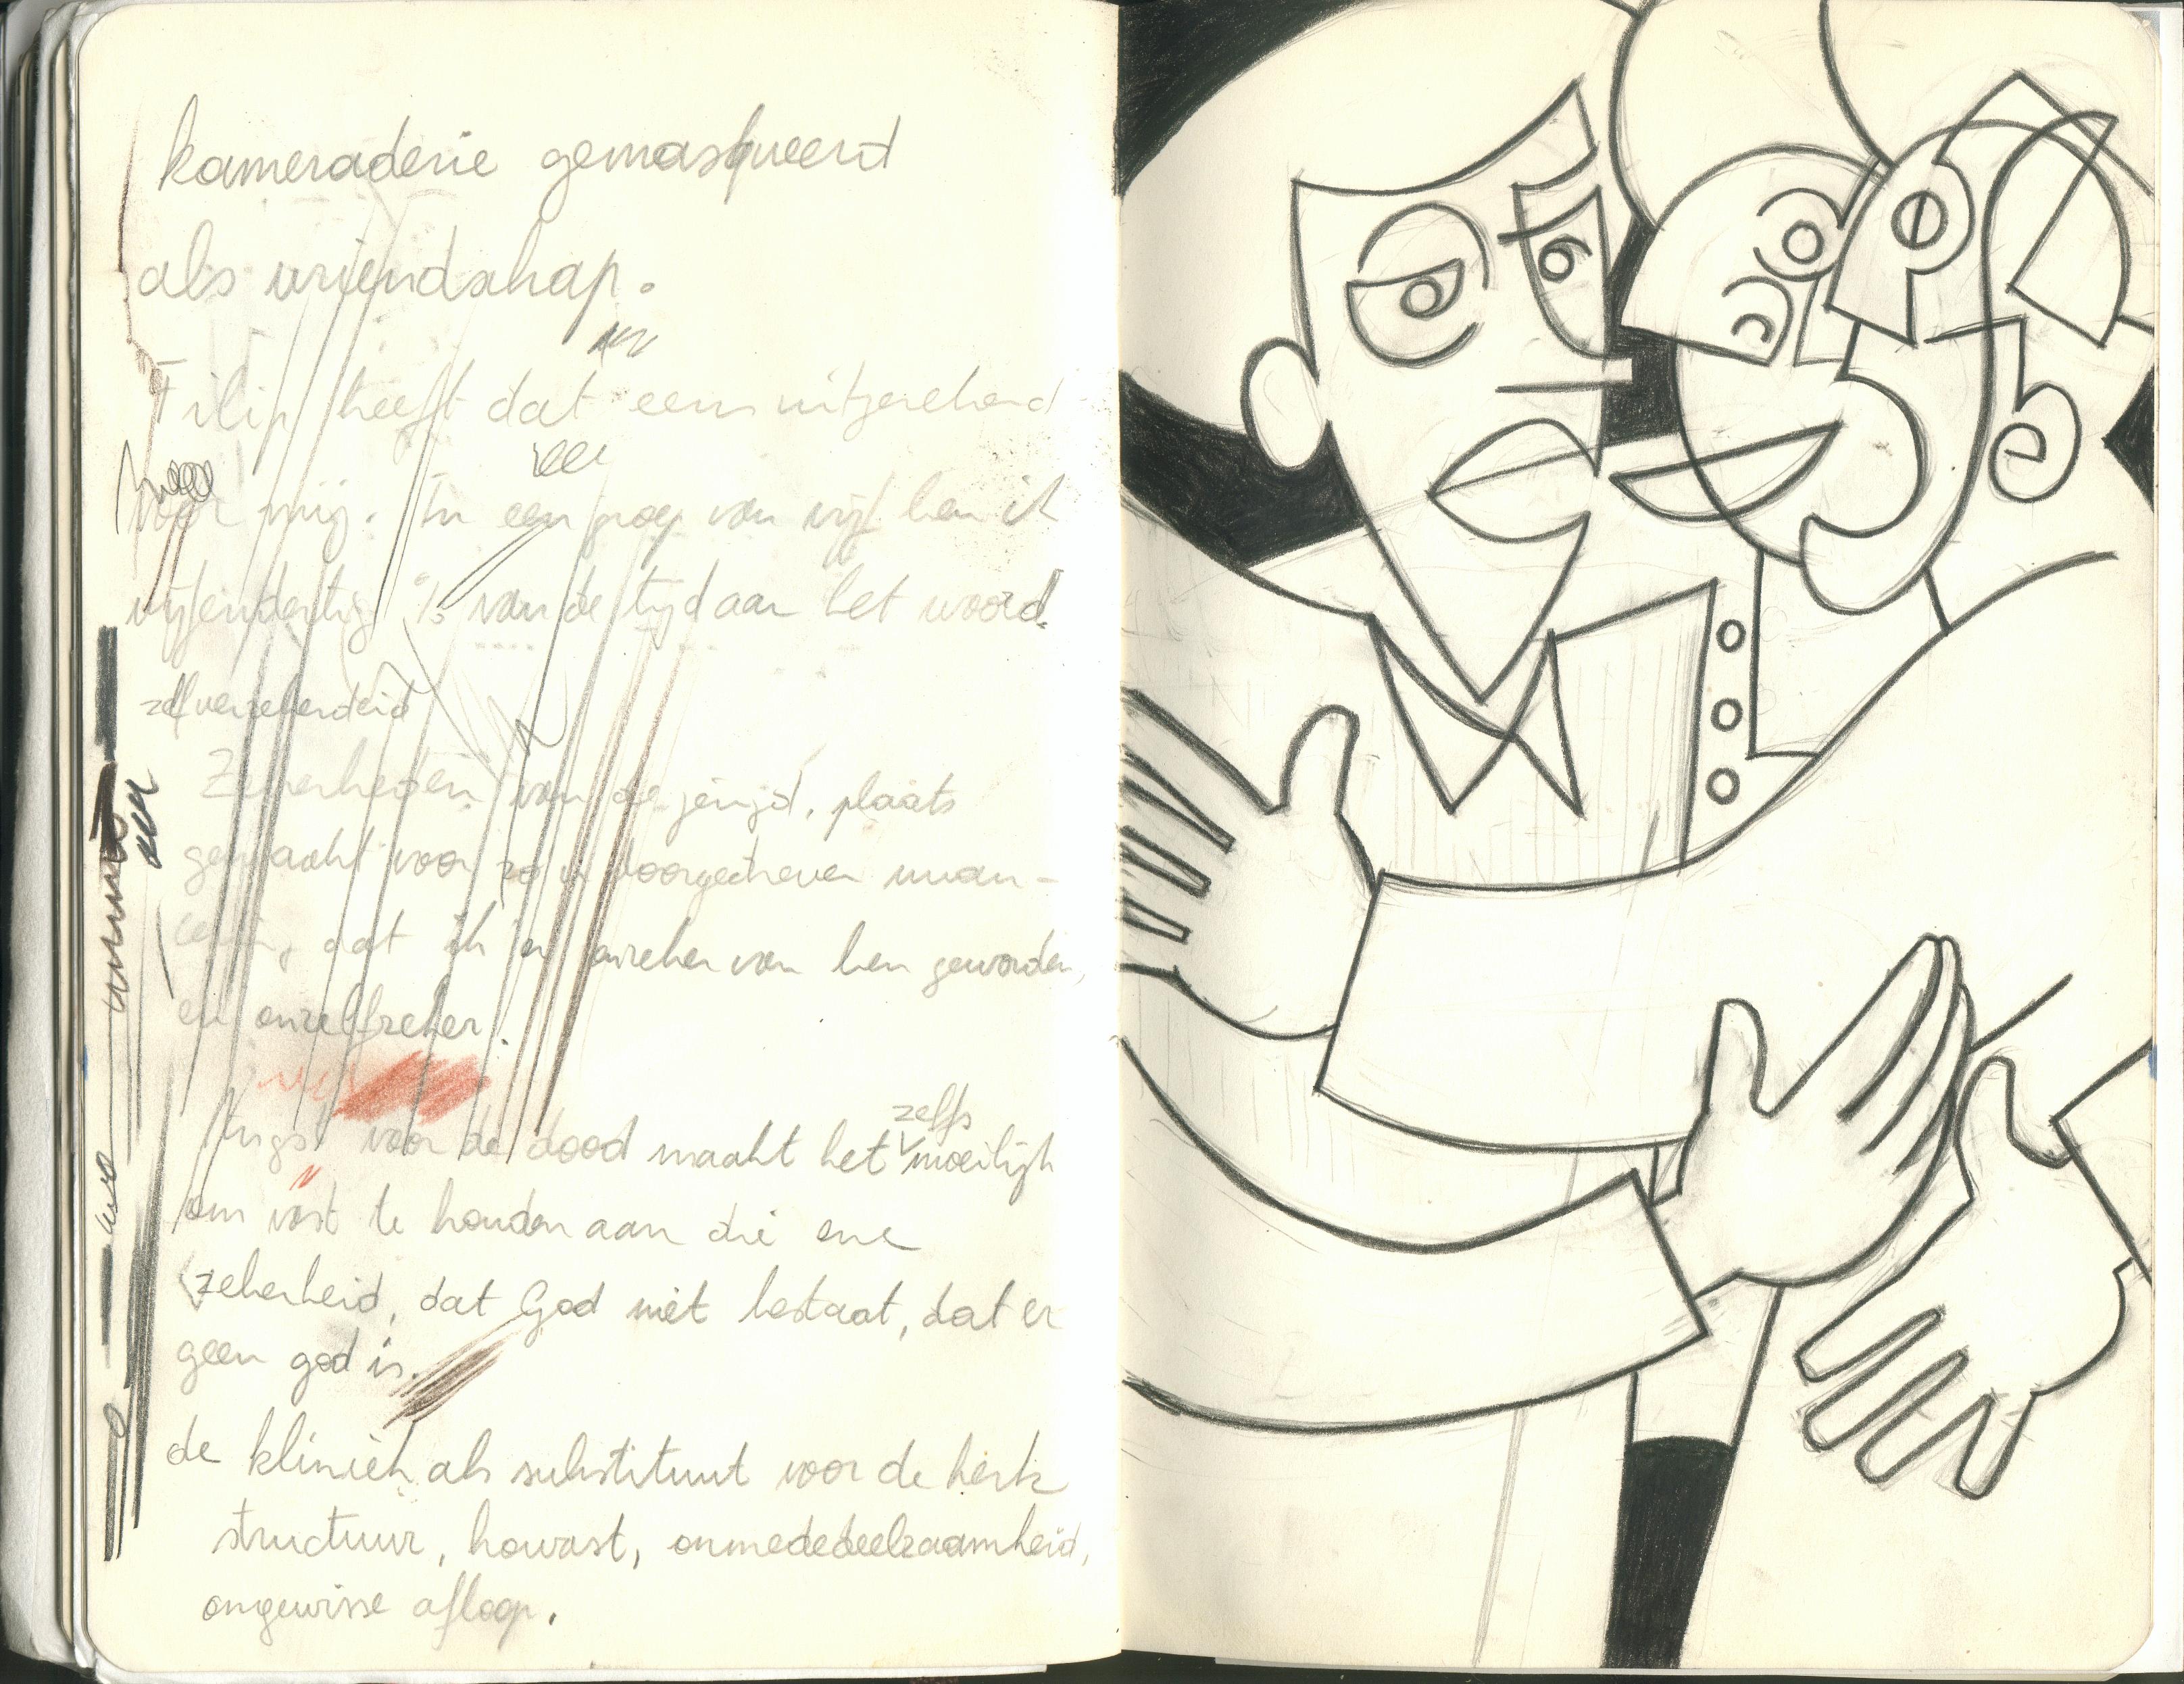 kameraderie gemasqueerd
als vriendschap.
Filip heeft dat eens uitgerekend
voor mij. In een groep van vijf ben ik
vijfendertig % van de tijd aan het woord.
zelfverzekerdheid
Zekerheden van de jeugd, plaats
gemaakt voor zo'n doorgedreven nuan-
cering, dat ik er onzeker van ben geworden,
en onzelfzeker.
Angst voor de dood maakt het zelfs moeilijk
om vast te houden aan die ene
zekerheid, dat God niet bestaat, dat er
geen god is.
de kliniek als substituut voor de kerk
structuur, houvast, onmededeelzaamheid,
ongewisse afloop.